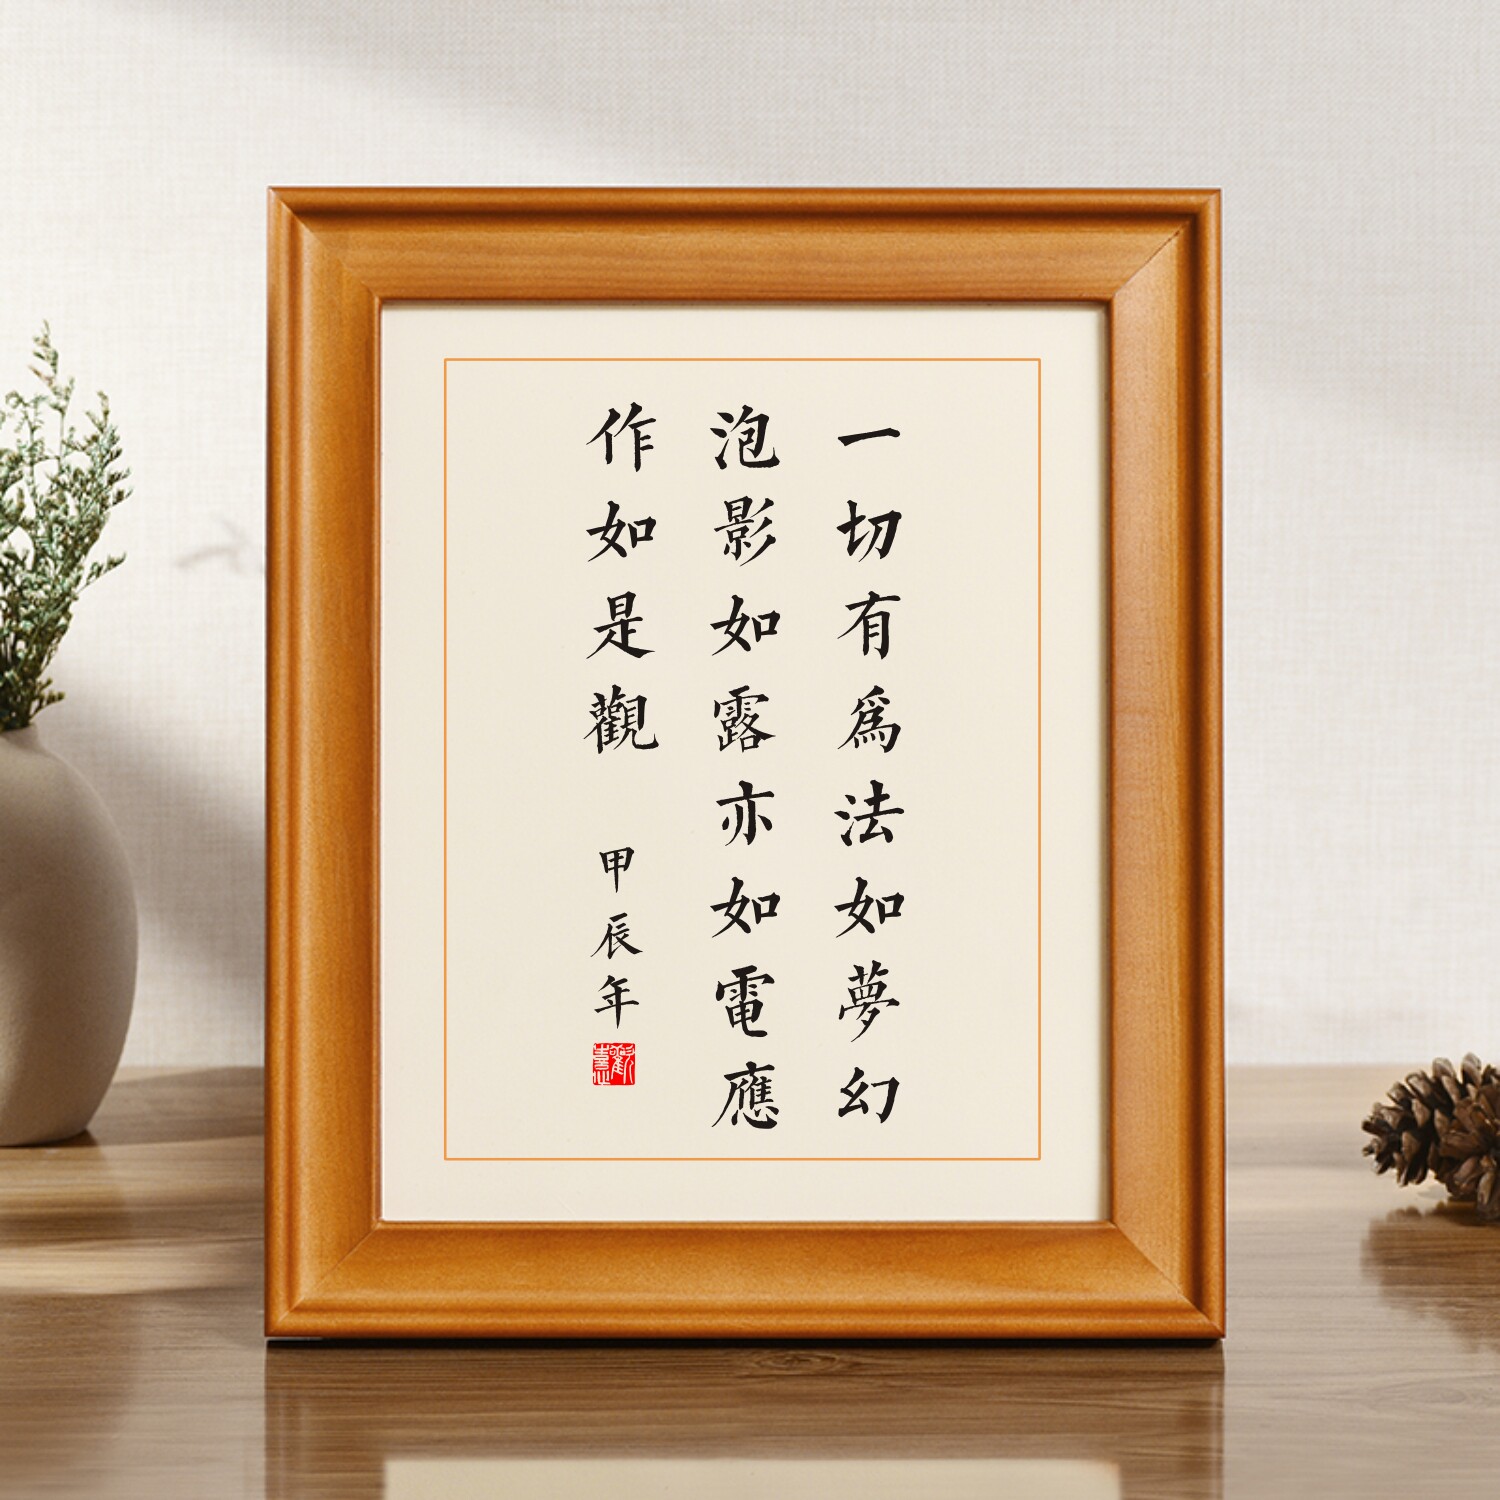 一切有為法如夢幻
泡影如露亦如電應
作如是觀
甲辰年